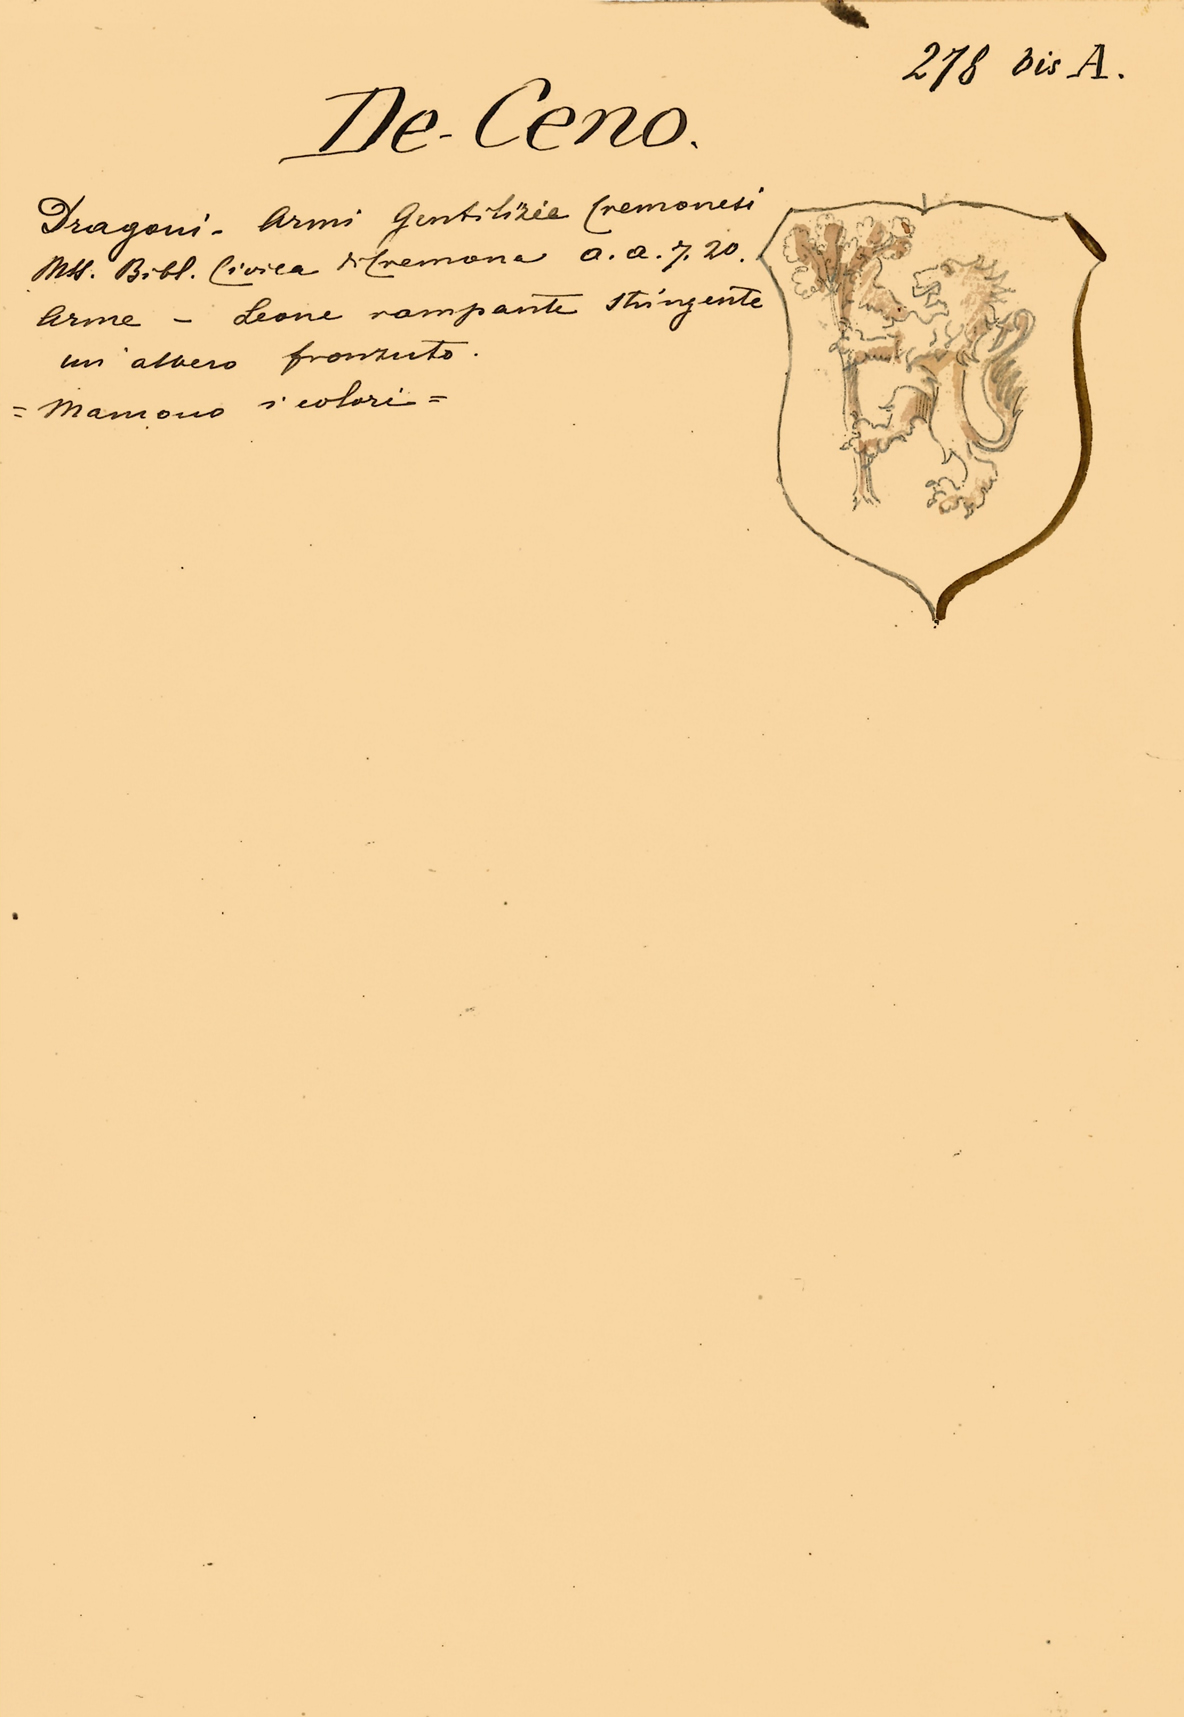 278 bis A.
De-Ceno.
Dragoni - Armi Gentilizie Cremonesi
Mss. Bibl. Civica di Cremona a.a.7.20.
Arme - Leone rampante stringente
un albero fronzuto.
= Mancano i colori =